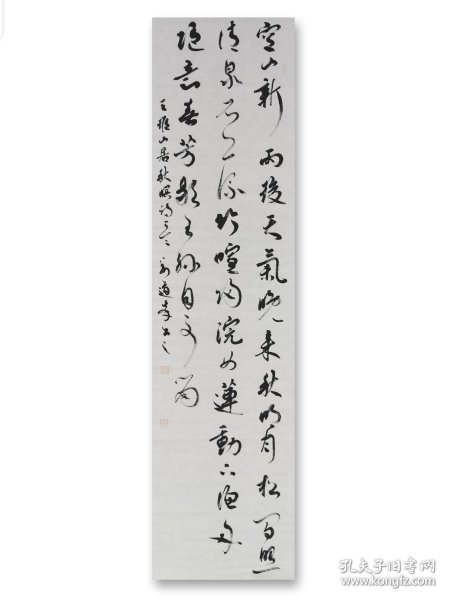 空山新雨後天氣晚来秋明月松間照
清泉石上流竹喧归浣女蓮動下渔舟
随意春芳歇王孫自可留
王維山居秋暝詩
孔夫子旧书网
www.kongfz.com